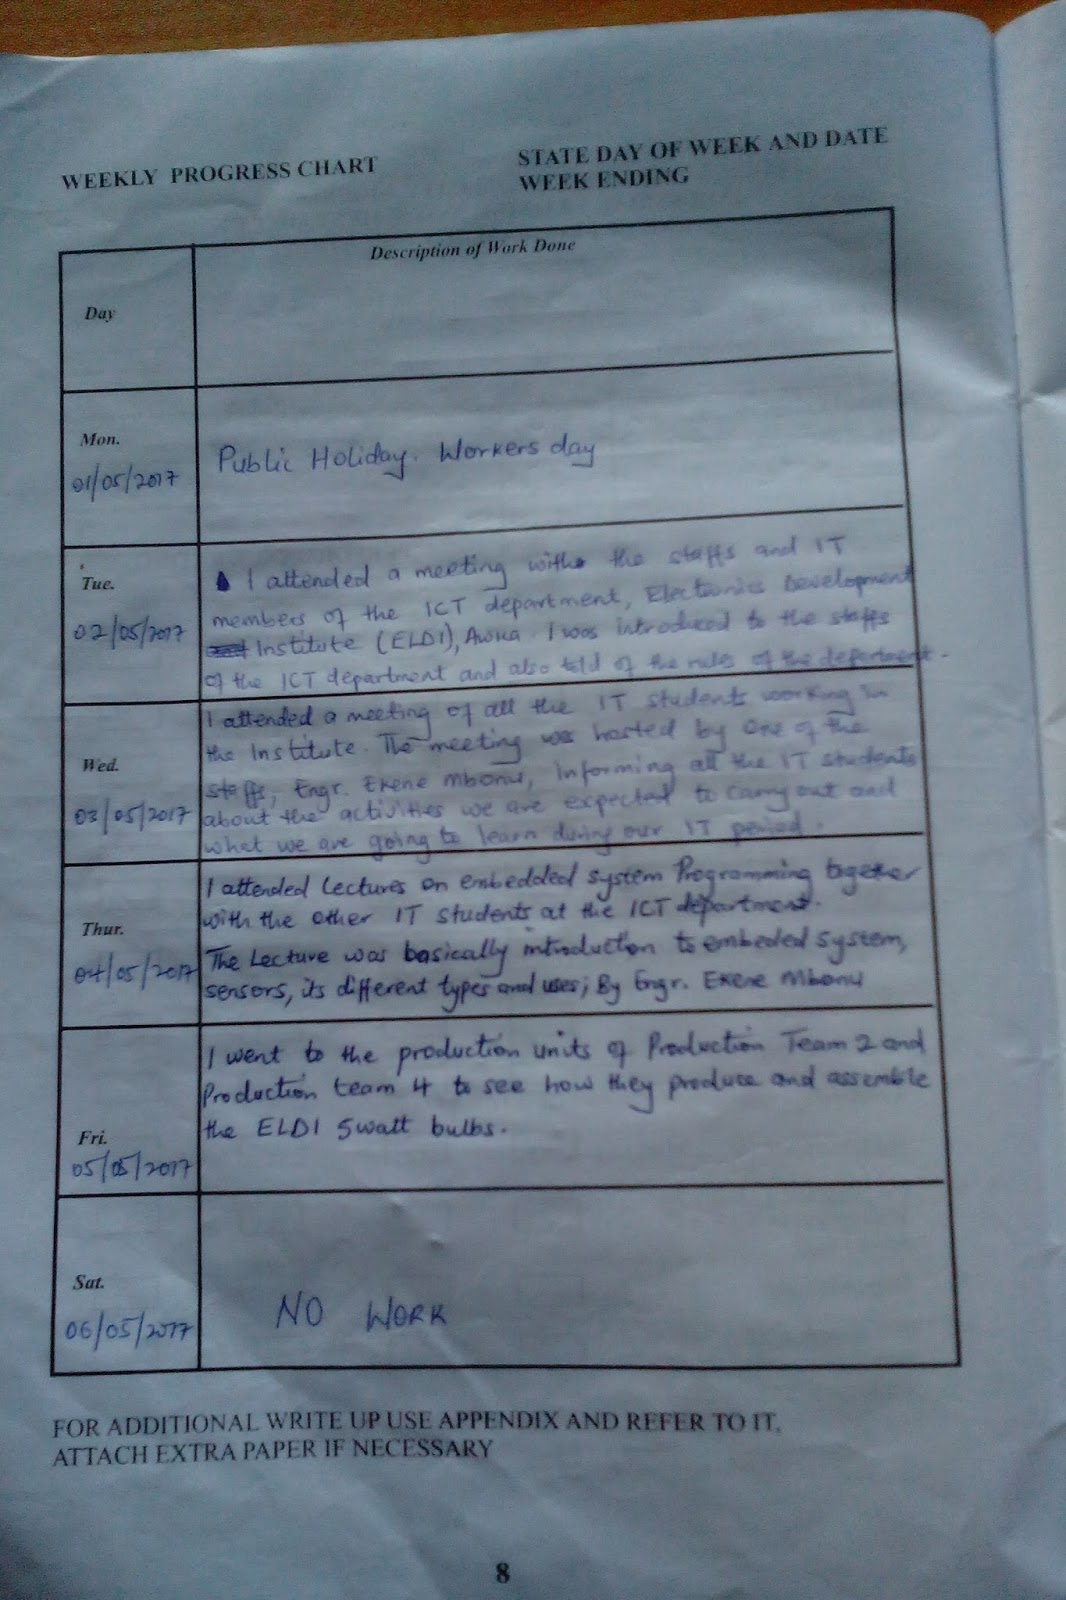 WEEKLY PROGRESS CHART
STATE DAY OF WEEK AND DATE
WEEK ENDING
Day
Description of Work Done
Mon.
01/05/2017
Public Holiday. Workers day
Tue.
02/05/2017
I attended a meeting with the staffs and IT
members of the ICT department, Electronics Development
Institute (ELDI), Awka. I was introduced to the staffs
of the ICT department and also told of the rules of the department.
Wed.
03/05/2017
I attended a meeting of all the IT students working in
the Institute. The meeting was hosted by one of the
staffs, Engr. Ekene Mbonu, informing all the IT students
about the activities we are expected to carry out and
what we are going to learn during our IT period.
Thur.
04/05/2017
I attended Lectures on embedded system Programming together
with the other IT students at the ICT department.
The Lecture was basically introduction to embeded system,
sensors, its different types and uses; By Engr. Ekene Mbonu
Fri.
05/05/2017
I went to the production units of Production Team 2 and
Production team 4 to see how they produce and assemble
the ELDI 5watt bulbs.
Sat.
06/05/2017
NO WORK
FOR ADDITIONAL WRITE UP USE APPENDIX AND REFER TO IT,
ATTACH EXTRA PAPER IF NECESSARY
8